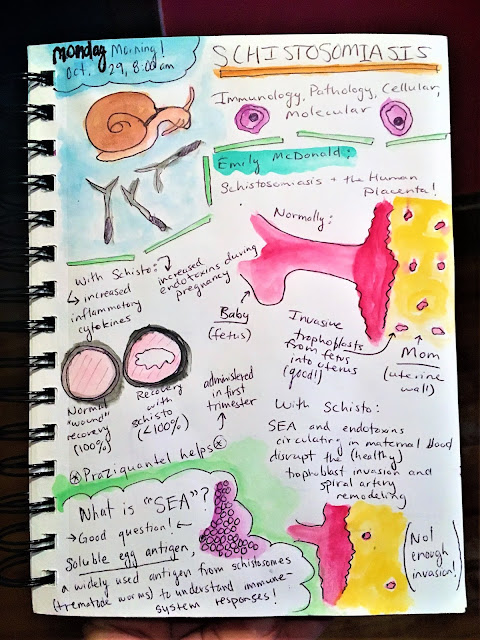 Monday Morning!
Oct. 29, 8:00am
SCHISTOSOMIASIS
Immunology, Pathology, Cellular,
Molecular
Emily McDonald:
Schistosomiasis + the Human
Placenta!
Normally:
Baby
(fetus)
Invasive
trophoblasts
from fetus
into uterus
(good!)
Mom
(uterine
wall)
With Schisto:
↳ increased
inflammatory
cytokines
increased
endotoxins during
pregnancy
Normal
"wound"
recovery
(100%)
Recovery
with
schisto
(<100%)
administered
in first
trimester
* Praziquantel helps *
With Schisto:
SEA and endotoxins
circulating in maternal blood
disrupt the (healthy)
trophoblast invasion and
spiral artery
remodeling
(Not
enough
invasion!)
What is "SEA"?
→ Good question! ←
Soluble egg antigen,
a widely used antigen from schistosomes
(trematode worms) to understand immune-
system responses!